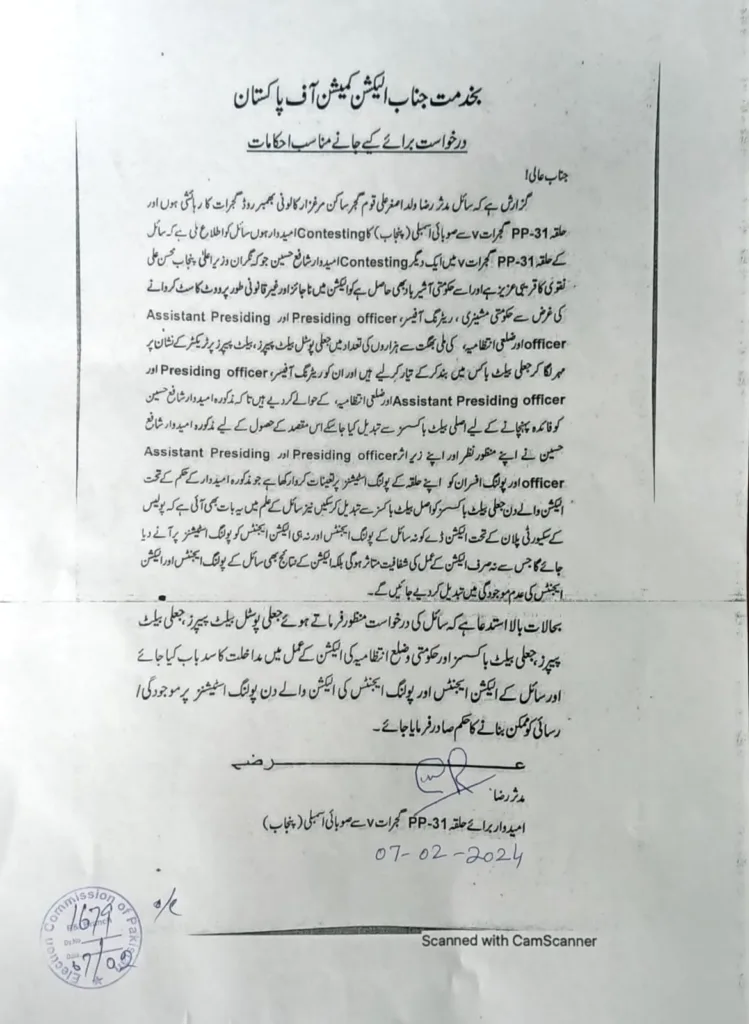 بخدمت جناب الیکشن کمیشن آف پاکستان
درخواست برائے کیے جانے مناسب احکامات
جناب عالی!
گزارش ہے کہ سائل مدثر رضا ولد اصغر علی قوم گجر ساکن مرغزار کالونی بھمبر روڈ گجرات کا رہائشی ہوں اور
حلقہ PP-31 گجرات v سے صوبائی اسمبلی (پنجاب) کا Contesting امیدوار ہوں سائل کو اطلاع ملی ہے کہ سائل
کے حلقہ PP-31 گجرات v میں ایک دیگر Contesting امیدوار شافع حسین جو کہ نگران وزیر اعلیٰ پنجاب محسن علی
نقوی کا قریبی عزیز ہے اور اسے حکومتی آشیر باد بھی حاصل ہے کو الیکشن میں ناجائز اور غیر قانونی طور پر ووٹ کاسٹ کروانے
کی غرض سے حکومتی مشینری، ریٹرنگ آفیسر، Presiding officer اور Assistant Presiding
officer اور ضلعی انتظامیہ، کی ملی بھگت سے ہزاروں کی تعداد میں جعلی پوسٹل بیلٹ پیپرز، بیلٹ پیپرز پر ٹریکٹر کے نشان پر
مہر لگا کر جعلی بیلٹ باکس میں بند کر کے تیار کر لیے ہیں اور ان کو ریٹرنگ آفیسر، Presiding officer اور
Assistant Presiding officer اور ضلعی انتظامیہ، کے حوالے کر دیے ہیں تا کہ مذکورہ امیدوار شافع حسین
کو فائدہ پہنچانے کے لیے اصلی بیلٹ باکسسز سے تبدیل کیا جا سکے اس مقصد کے حصول کے لیے مذکورہ امیدوار شافع
حسین نے اپنے منظور نظر اور اپنے زیر اثر Presiding officer اور Assistant Presiding
officer اور پولنگ افسران کو اپنے حلقہ کے پولنگ اسٹیشنز پر تعینات کروا رکھا ہے جو مذکورہ امیدوار کے حکم کے تحت
الیکشن والے دن جعلی بیلٹ باکسسز کو اصل بیلٹ باکسسز سے تبدیل کر سکیں نیز سائل کے علم میں یہ بات بھی آئی ہے کہ پولیس
کے سیکورٹی پلان کے تحت الیکشن ڈے کو نہ سائل کے پولنگ ایجنٹس اور نہ ہی الیکشن ایجنٹس کو پولنگ اسٹیشنز پر آنے دیا
جائے گا جس سے نہ صرف الیکشن کے عمل کی شفافیت متاثر ہوگی بلکہ الیکشن کے نتائج بھی سائل کے پولنگ ایجنٹس اور الیکشن
ایجنٹس کی عدم موجودگی میں تبدیل کر دیے جائیں گے۔
بحالات بالا استدعا ہے کہ سائل کی درخواست منظور فرماتے ہوئے جعلی پوسٹل بیلٹ پیپرز، جعلی بیلٹ
پیپرز، جعلی بیلٹ باکسسز اور حکومتی و ضلع انتظامیہ کی الیکشن کے عمل میں مداخلت کا سد باب کیا جائے
اور سائل کے الیکشن ایجنٹس اور پولنگ ایجنٹس کی الیکشن والے دن پولنگ اسٹیشنز پر موجودگی /
رسائی کو ممکن بنانے کا حکم صادر فرمایا جائے۔
عــــــــرضے
مدثر رضا
امیدوار برائے حلقہ PP-31 گجرات v سے صوبائی اسمبلی (پنجاب)
07-02-2024
Election Commission of Pakistan
1679
Scanned with CamScanner